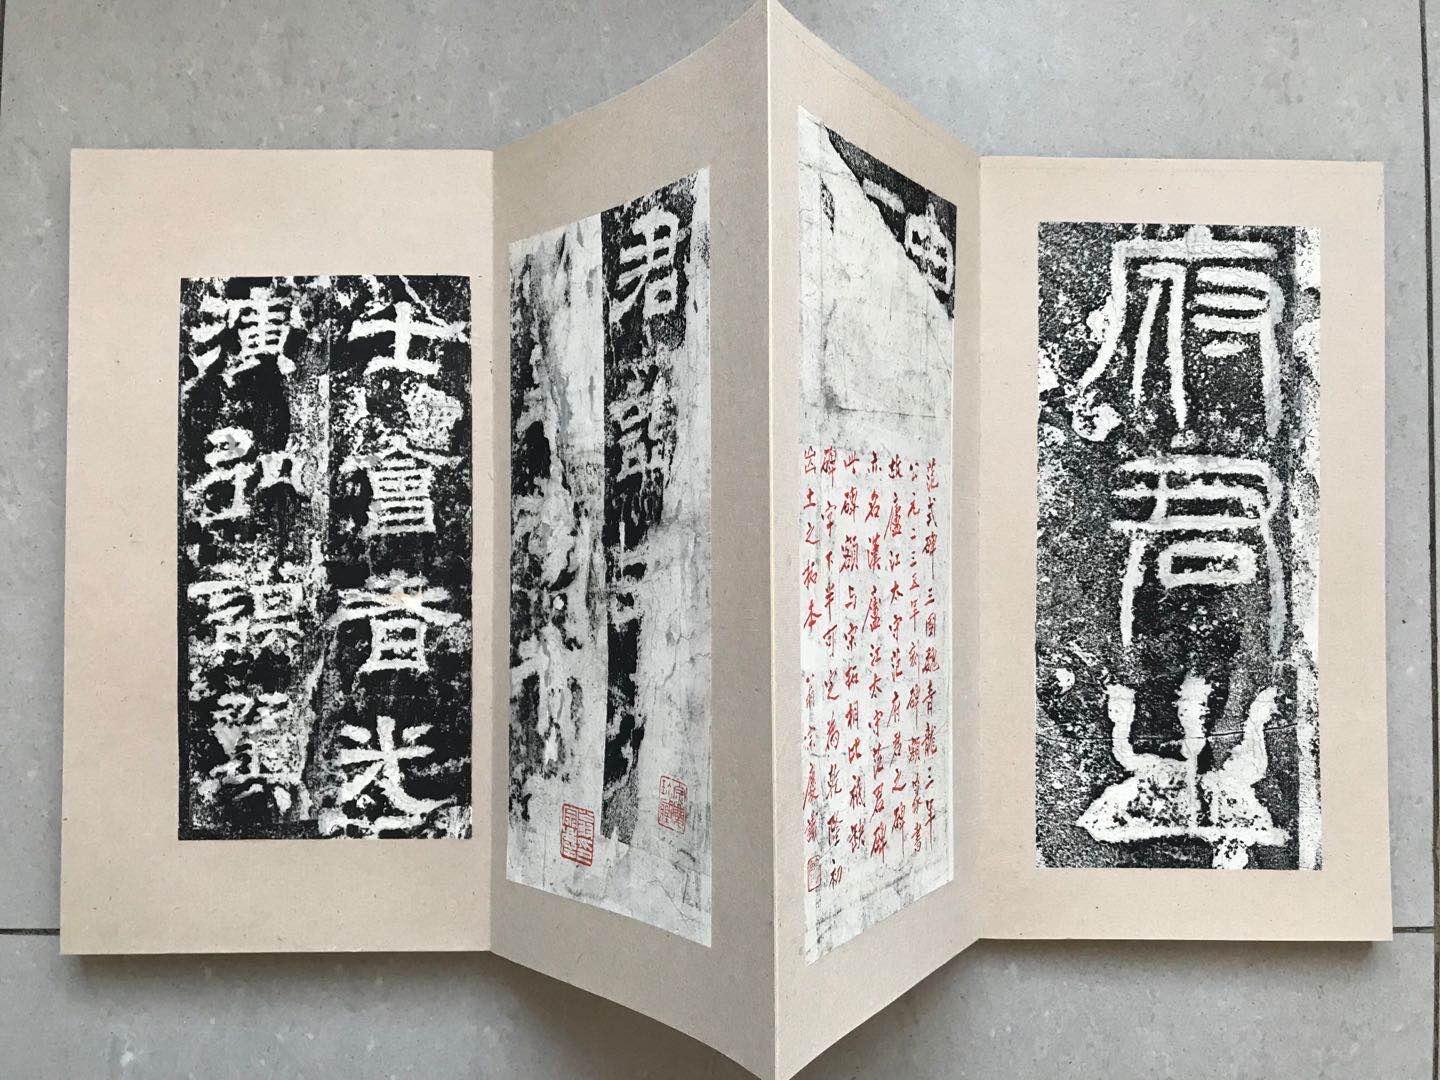 府君之
申
一
范式碑三國魏青龍三年
公元二三五年刻碑額篆書
故廬江太守范府君之碑
亦名漢廬江太守范君碑
此碑額与宋拓相比
碑字下半可定為乾隆初
出土之拓本
君諱
士會者光
演弘謨翼